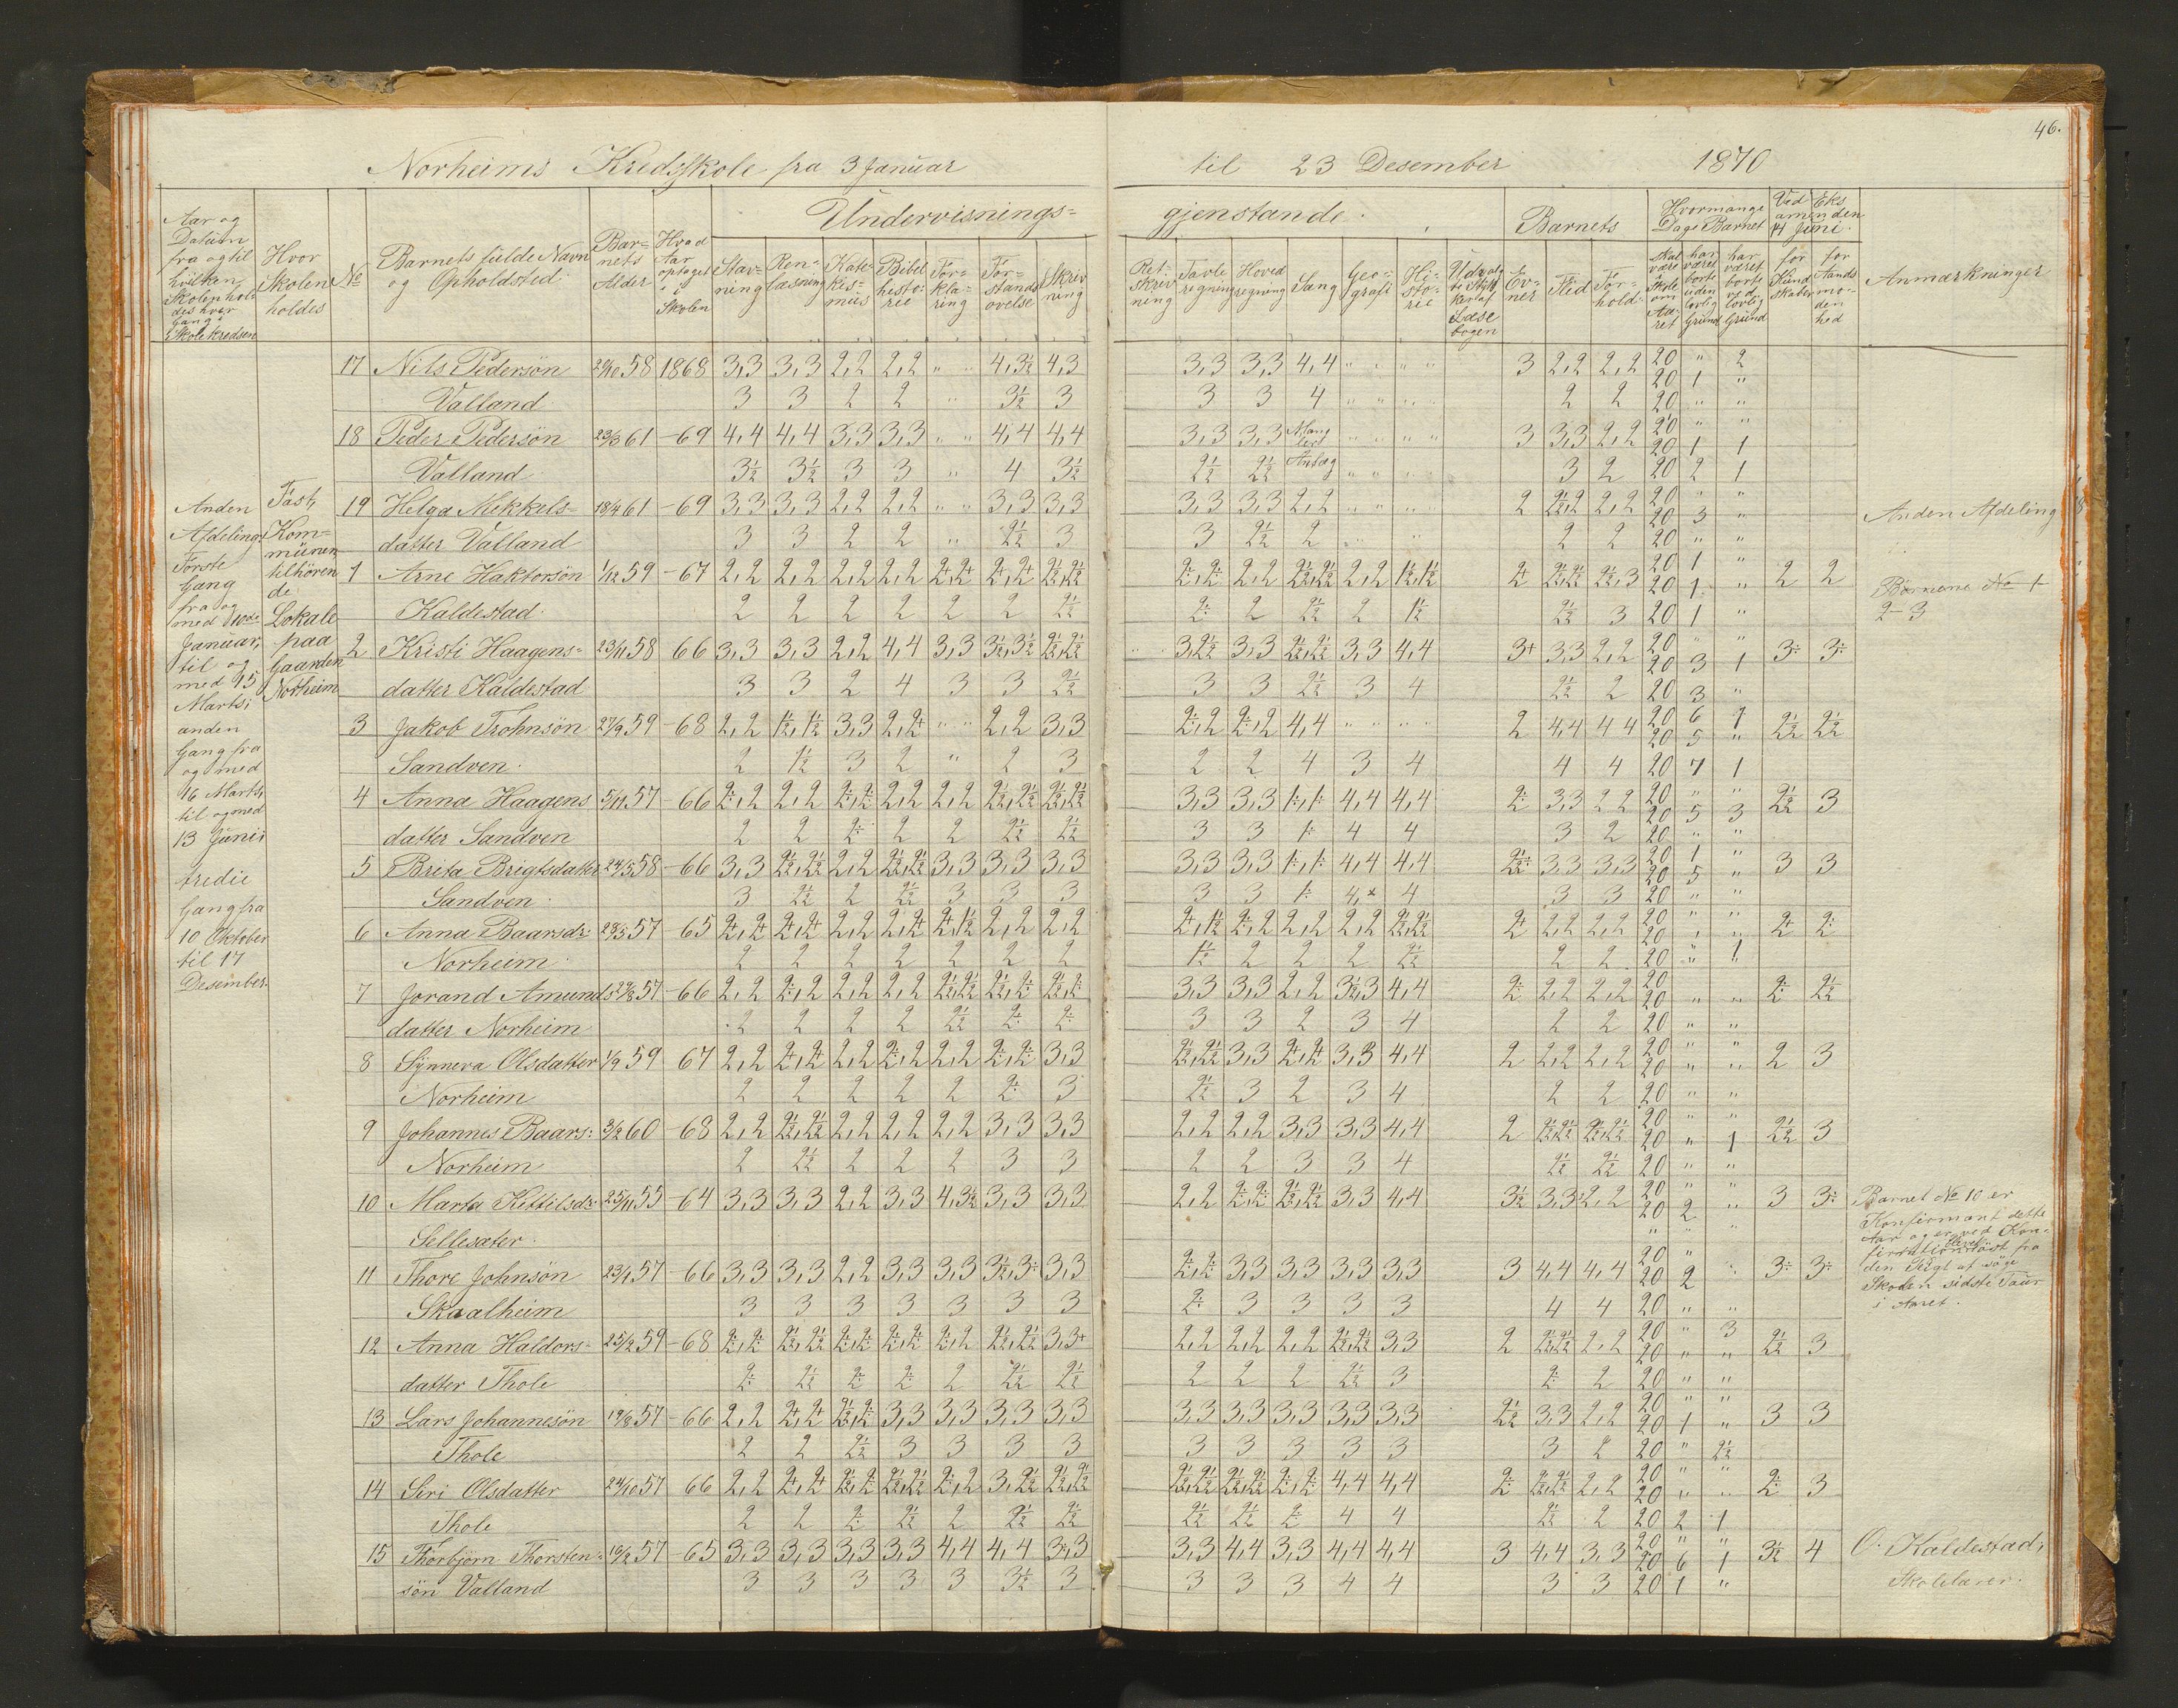 46.
Norheims Kredsskole fra 3 Januar til 23 Desember 1870
Aar og Datum fra og til hvilken Skolen holdes hver Gang i Skolekredsen
Hvor Skolen holdes
No
Barnets fulde Navn og Opholdsted
Barnets Alder
Hvad Aar optaget i Skolen
Undervisnings= gjenstande.
Stavning
Renlæsning
Katekismus
Bibelhistorie
Forklaring
Forstandsøvelse
Skrivning
Retskrivning
Tavleregning
Hovedregning
Sang
Geografi
Historie
Udvalgte Stykker af Læsebogen
Barnets
Evner
Flid
Forhold
Hvormange Dage Barnet
skal være i Skole om Aaret
har været borte uden lovlig Grund
har været borte ved lovlig Grund
Ved Eksamen den 14 Juni
for Kundskaber
for Aandsmodenhed
Anmærkninger
Anden Afdeling
Første Gang fra og med 3die Januar, til og med 15 Marts; anden Gang fra og med 16 Marts, til og med 13 Juni; tredie Gang fra 10 Oktober til 17 Desember.
Fast, Kommunen tilhørende Lokale paa Gaarden Norheim
17 Nils Pedersön 58 1868 3,3 3,3 2,2 2,2 " " 4,3½ 4,3 3,3 3,3 4,4 " " " " 3 2,2 2,2 20 " 2
Valland 3 3 2 2 " 3½ 3 3 3 4 " " 2 2 20 " "
18 Peder Pedersön 23/3 61 -69 4,4 4,4 3,3 3,3 " " 4,4 4,4 3,3 3,3 Manglert 3 3,3 2,2 20 1 1
Valland 3½ 3½ 3 3 " 4 3½ 2½ 2½ Anlæg 3 2 20 2 1
19 Helga Mekkels= 18/4 61 -69 3,3 3,3 2,2 2,2 " " 3,3 3,3 3,3 3,3 2,2 2 2½,2 2,2 20 3 "
datter Valland 3 3 2 2 " 2½ 3 3 2½ 2 2 2 20 " "
Anden Afdeling
1 Arne Haktorsön 1/12 59 -67 2,2 2,2 2,2 2,2 2,2 1½,1½ 2 2
Kaldestad 2 2 2 2 2 2 2½ 2 2½ 2 1½ 2½ 3 20 1 "
Børnene No 1
2-3
2 Kristi Haagens= 23/11 58 66 3,3 3,3 2,2 4,4 3,3 3½,3½ 2½,2½ 3,2½ 3,3 2½,2½ 3,3 4,4 3+ 3,3 2,2 20 3 1 3÷ 3÷
datter Kaldestad 3 3 2 4 3 3 2½ 3 3 2½ 3 4 2½ 2 20 3 "
3 Jakob Trohnsön 27/9 59 -68 2,2 1½,1½ 3,3 2,2+ " " 2,2 3,3 2÷,2 2÷,2 4,4 " " " " 2 4,4 4 4 20 5 " 2½ 2½
Sandven 2 1½ 3 2 " 2 3 2 2 4 3 4 4 4 20 7 1
4 Anna Haagens 5/11 57 -66 2÷,2 2,2 2÷,2÷ 2,2 2,2 2½,2½ 2½,2½ 3,3 3,3 1÷,1÷ 4,4 4,4 2÷ 3,3 2 2 20 5 3 2½ 3
datter Sandven 2 2 2÷ 2 2 2½ 2½ 3 3 1÷ 4 4 3 2 20 " "
5 Brita Brigtsdatter 24/5 58 -66 3,3 2½,2½ 2,2 2½,2½ 3,3 3,3 3,3 3,3 3,3 1÷,1÷ 4,4 4,4 2½÷ 3,3 3,3 20 5 " 3 3
Sandven 3 2½ 2 2½ 3 3 3 3 3 1÷ 4 4 3 3 20 " "
6 Anna Baarsdr 57 65 2+,2+ 2+,2+ 2,2 2,2+ 2+,1½ 2,2 2,2 2+,1½ 2÷,2 2,2 2,2 2½,2½ 2+ 2,2 2,2 20 2+ 2÷
Norheim 2 2 2 2 2 2 2 1½ 2 2 2 2½ 2 2 20 " 1
7 Jorand Amunds 57 -66 2,2 2÷,2 2,2 2,2 2½,2½ 2½,2÷ 2½,2÷ 3,3 3,3 2,2 3½,3 4,4 2÷ 2,2 2,2 20 " " 2÷ 2½
datter Norheim 2 2 2 2 2½ 2÷ 2÷ 3 3 2 3 4 2 2 20 " "
8 Synnera Olsdatter 1/9 59 67 2,2 2+,2+ 2,2 2÷,2 2,2 2÷,2÷ 3,3 2½,2½ 3,3 2+,2+ 3,3 4,4 2 2,2 2,2 20 " " 2 3
Norheim 2 2 2 2 2 2÷ 3 2½ 3 2 3 4 2 2 20 " "
9 Johannes Baars: 3/2 60 -68 2,2 2½,2½ 2,2 2,2 2,2 3,3 3,3 2,2 2,2 3,3 3,3 4,4 2 2½,2½ 2½,2½ 20 " 1 2½ 3
Norheim 2 2½ 2 2 2 3 3 2 2 3 3 4 2½ 2½ 20 " "
10 Marta Kittilsdr 25/11 55 -64 3,3 3,3 2,2 3,3 4,3½ 3,3 3,3 2,2 2÷,2÷ 2½,2½ 3,3 4,4 3½ 3,3 2,2 20 2 " 3 3÷
Sellesæter
Barnet No 10 er Konfirmant dette Aar og er ved Konfirmation løst fra den Pligt at søge Skolen sidste Tour i Aaret.
11 Thore Johnsön 23/1 57 -66 3,3 3,3 2,2 3,3 3,3 3½,3÷ 3,3 2÷,2÷ 3,3 3,3 3,3 3,3 3 4,4 4,4 20 2 " 3÷ 3÷
Skaalheim 3 3 3 3 3 3 3 2÷ 3 3 3 3 4 4 20 " "
12 Anna Haldors- 25/2 59 -68 2÷,2÷ 2½,2½ 2÷,2÷ 2÷,2÷ 2÷,2 2½,2½ 3,3+ 2,2 2,2 2,2 2½,2½ 3,3 2 2½,2½ 2,2 20 " " 2½ 3
datter Thole 2÷ 2½ 2÷ 2÷ 2 2½ 2½ 2 2 2 2½ 3 2÷ 2 20 " "
13 Lars Johannesön 19/8 57 -66 2,2 2+,2+ 2½,2÷ 3,3 3,3 3,3 3,3 3,3 3,3 3,3 3,3 3,3 2½ 3,3 2,2 20 1 " 3 3
Thole 2 2 2½ 3 3 3 3 3 3 3 3 3 3 2 20 " 2½
14 Siri Olsdatter 24/10 57 66 2,2 2+,2+ 2½,2÷ 2½,2½ 2÷,2 3,2½ 2½,2½ 2½,2½ 2½,2½ 2÷,2÷ 4,4 4,4 2÷ 2½,2½ 2,2 20 " " 2÷ 3
Thole 2 2 2÷ 2½ 2 2½ 2½ 2½ 2½ 2÷ 4 4 2½ 2 20 2 1
15 Thorbjørn Thorsten= 57 -65 3,3 3,3 3,3 3,3 4,4 4,4 3½,3 3,3 4,4 3,3 4,4 4,4 3 4,4 3,3 20 6 1 3½ 4
søn Valland 3 3 3 3 3 3½ 3 3 3 3 4 4 3 3 20 1 "
O. Kaldestad,
Skolelærer.